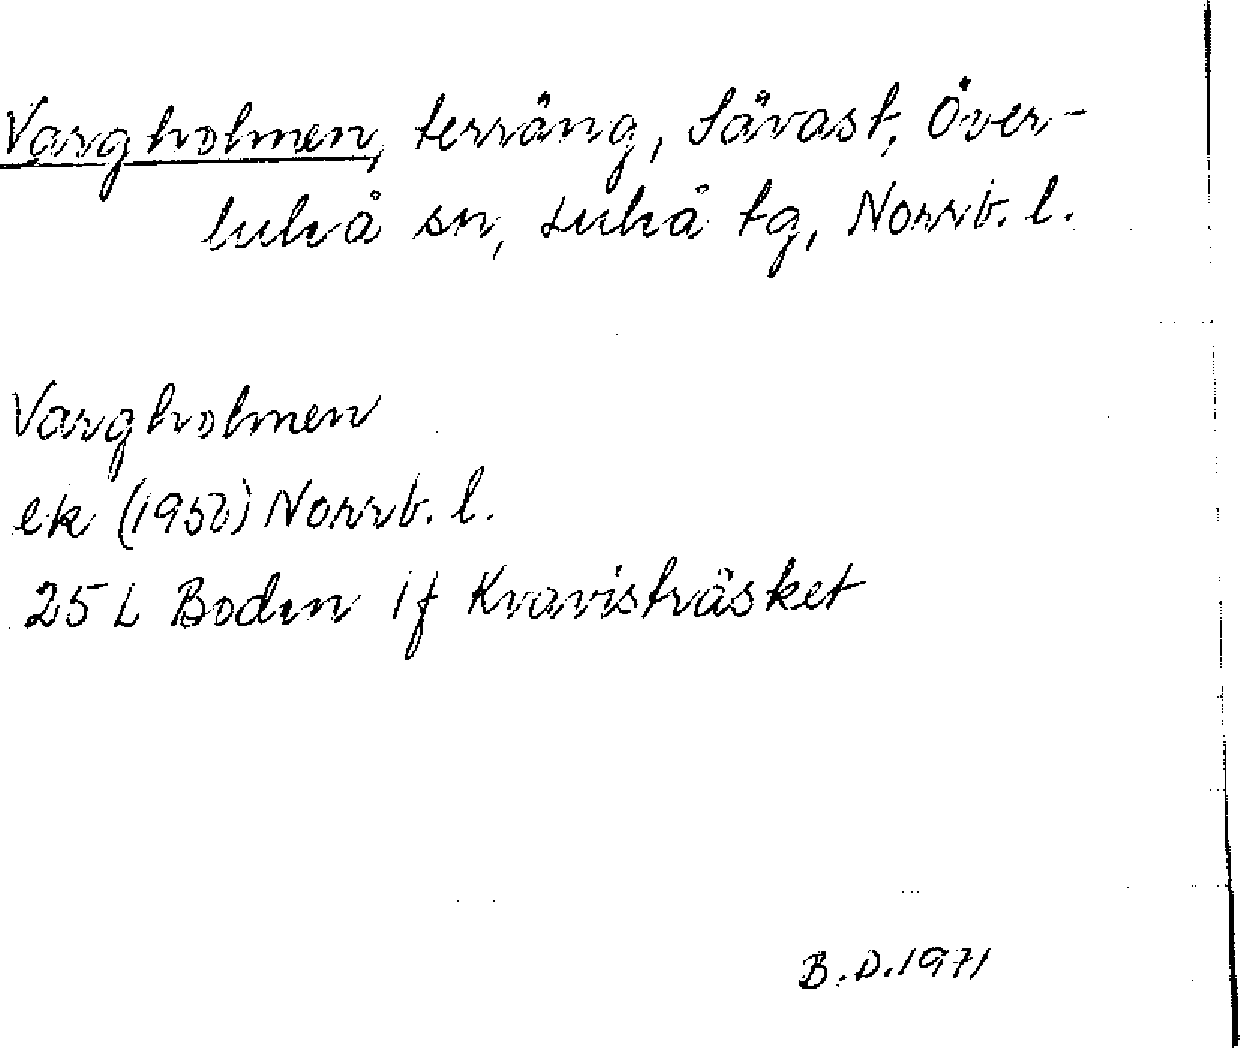 Vargholmen, terräng, Sävast, Över-
luleå sn, Luleå tg, Norrb. l.
Vargholmen
ek (1950) Norrb. l.
25 L Boden 1f Kvavisträsket
B.D.1971